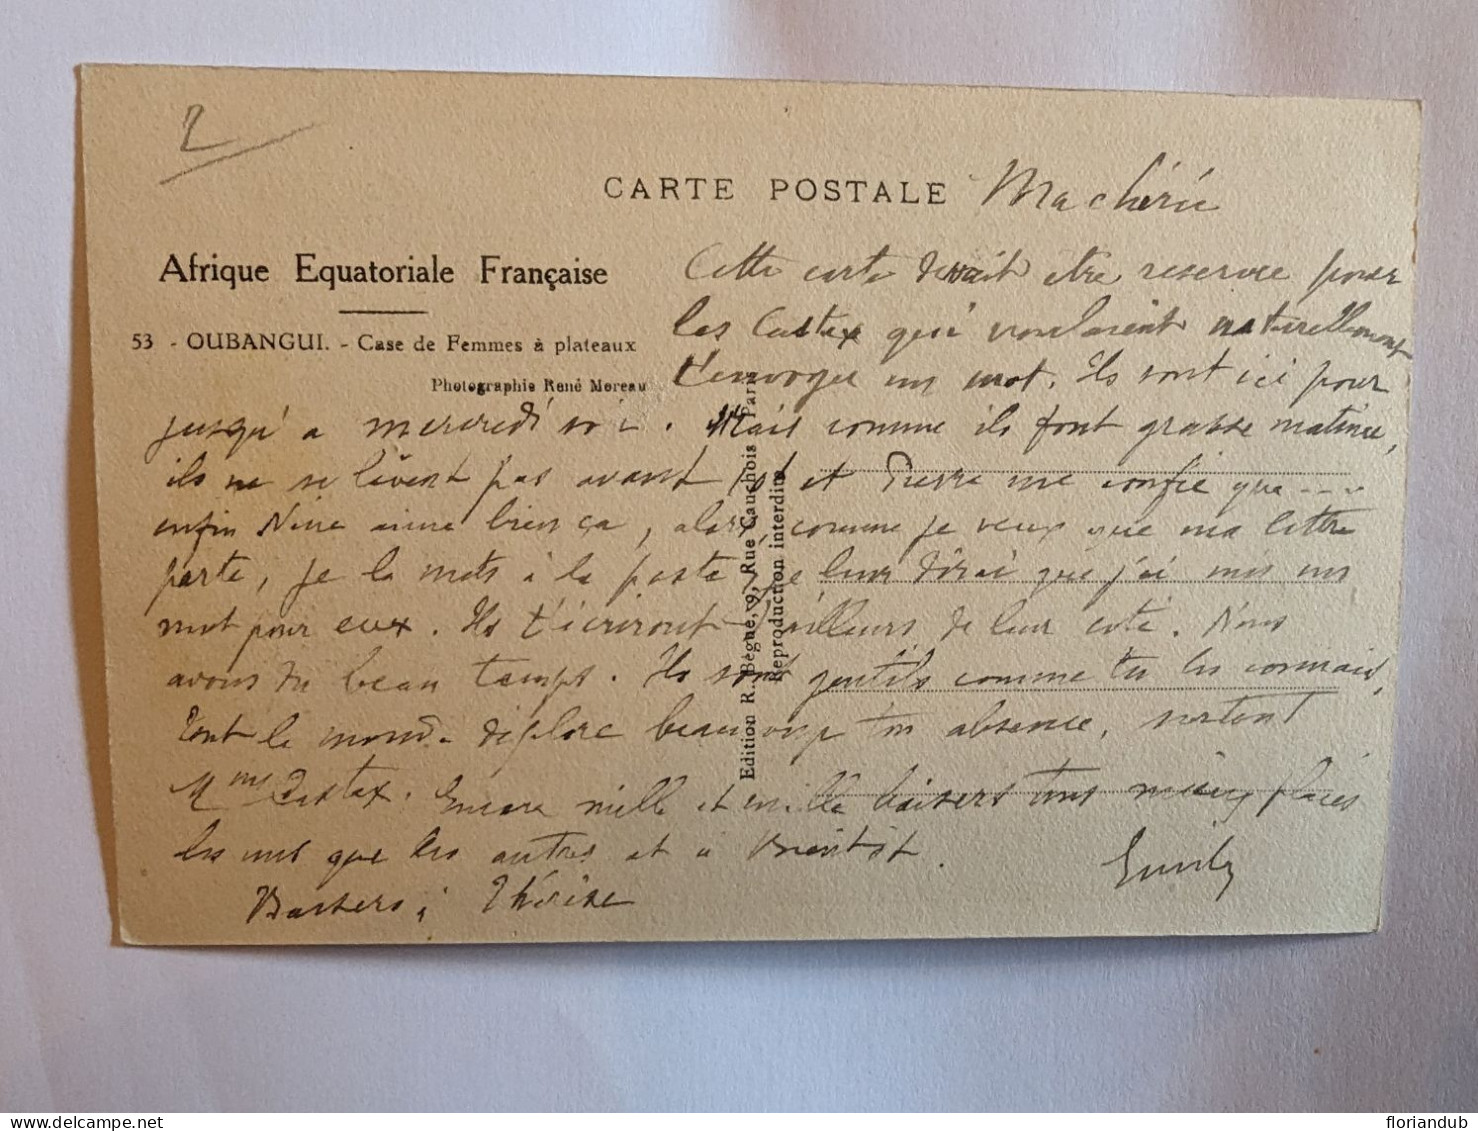 2
CARTE POSTALE
Ma chérie
Afrique Equatoriale Française
53 - OUBANGUI. - Case de Femmes à plateaux
Photographie René Moreau
Edition R. Bègue, 9, Rue Cauchois - Paris
Reproduction interdite
Cette carte devrait etre reservee pour
les Castex qui voulaient naturellement
t'envoyer un mot. Ils sont ici pour
jusqu'a mercredi soir. Mais comme ils font grasse matinée,
ils ne se lèvent pas avant et Pierre me confie que ...
enfin Nine aime bien ça, alors, comme je veux que ma lettre
parte, je la mets à la poste je leur dirai que j'ai mis un
mot pour eux. Ils t'écriront d'ailleurs de leur coté. Nous
avons du beau temps. Ils sont gentils comme tu les connais,
Tout le monde déplore beaucoup ton absence, surtout
Mme Castex. Encore mille et mille baisers tous mieux placés
les uns que les autres et à bientôt.
Baisers à Thérèse
floriandub